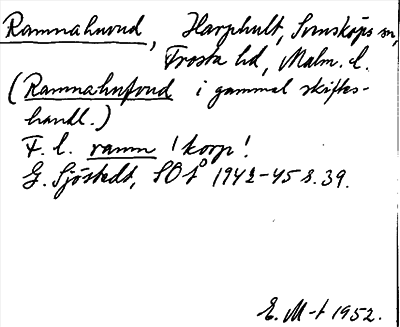 Ramnahuvud, Harphult, Svensköps sn,
Frosta hd, Malm. l.
(Ramnahufvud i gammal skiftes-
handl.)
F. l. ramn 'korp'.
G. Sjöstedt, SOÅ 1942-45 s. 39.
E. M-t 1952.